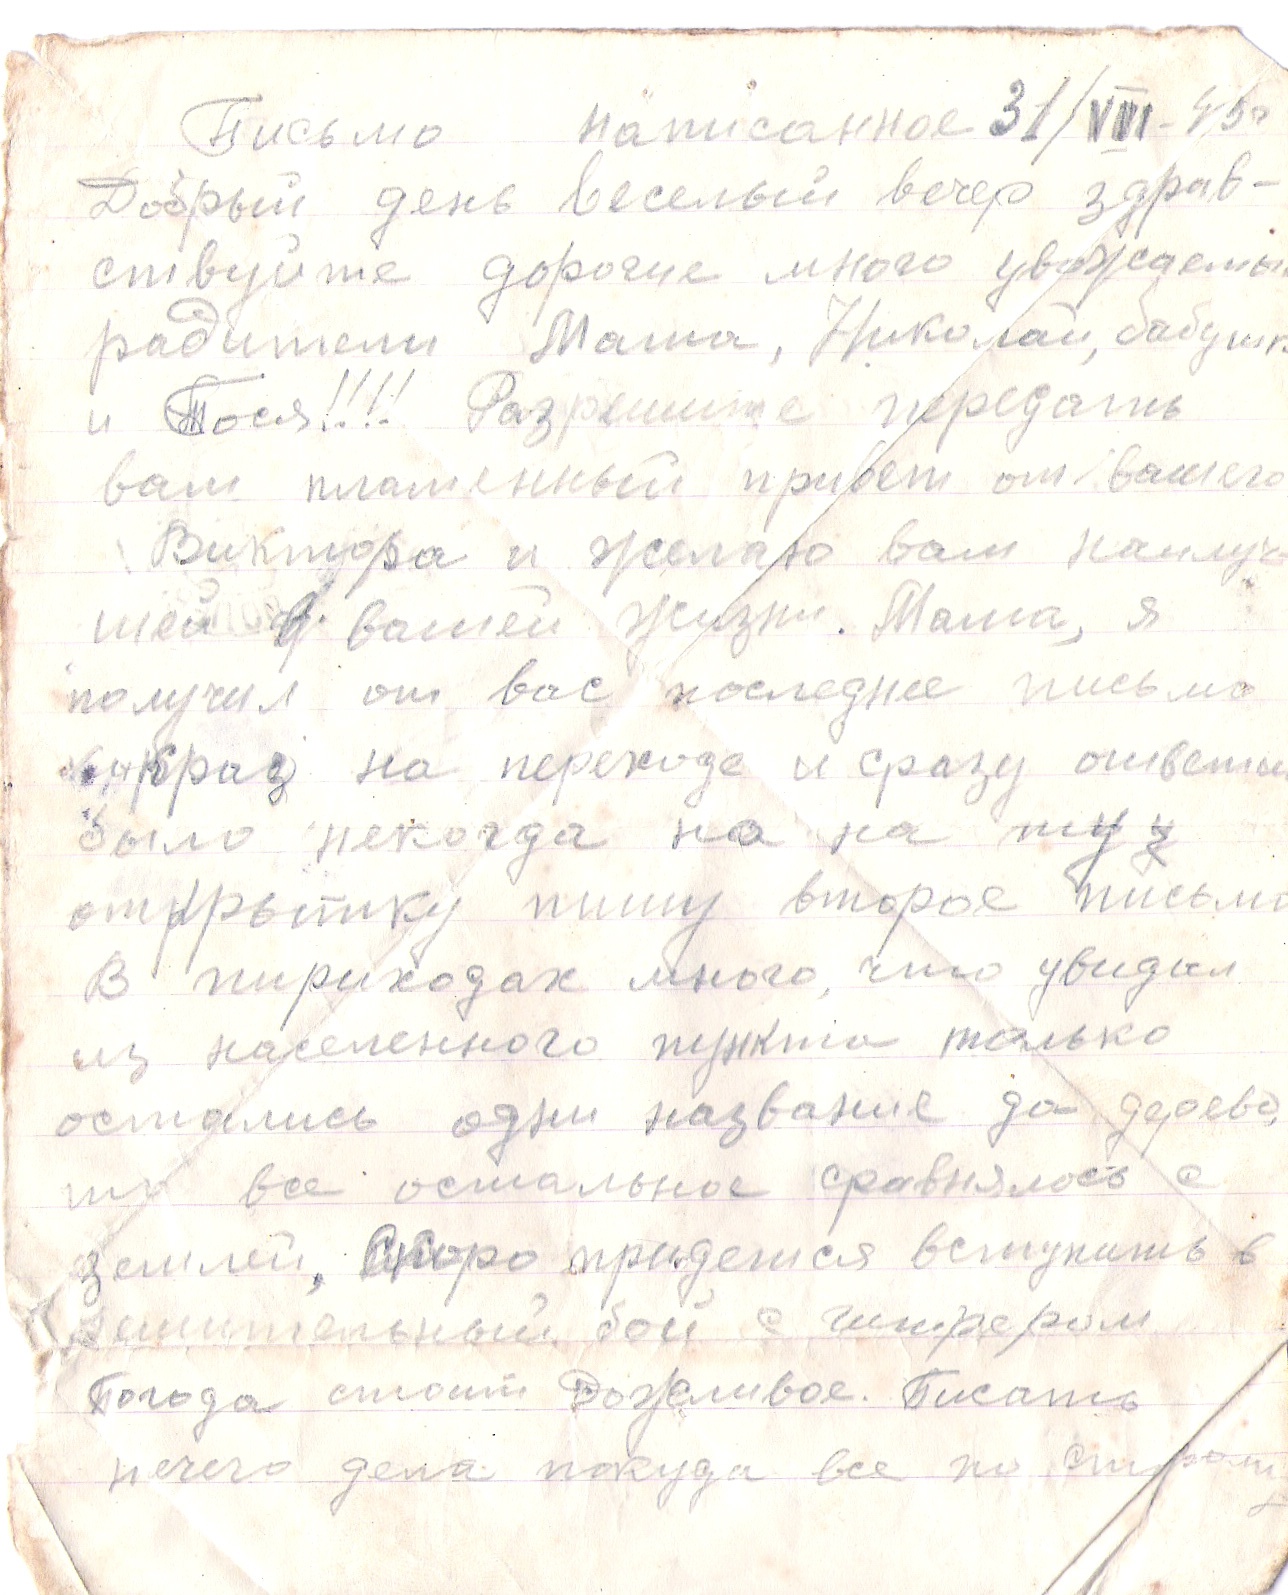 Письмо написанное 31/VIII-45г
Добрый день веселый вечер здрав-
ствуйте дорогие много уважаемы
радители Мама, Николай, бабушк
и Тося!!!! Разрешите передать
вам пламенный привет от вашего
Виктора и желаю вам наилуч
шей в вашей жизни. Мама, я
получил от вас последнее письмо
на переходе и сразу ответит
было некогда на на ту
открытку пишу второе письмо
В пириходах много, что увидил
из населенного пункта только
остались одни название да дерева,
то все остальное сравнялось с
землей, Скоро придется вступить в
решительный бой с гитлером
Погода стоит Дожливое. Писать
нечего дела покуда все по старому